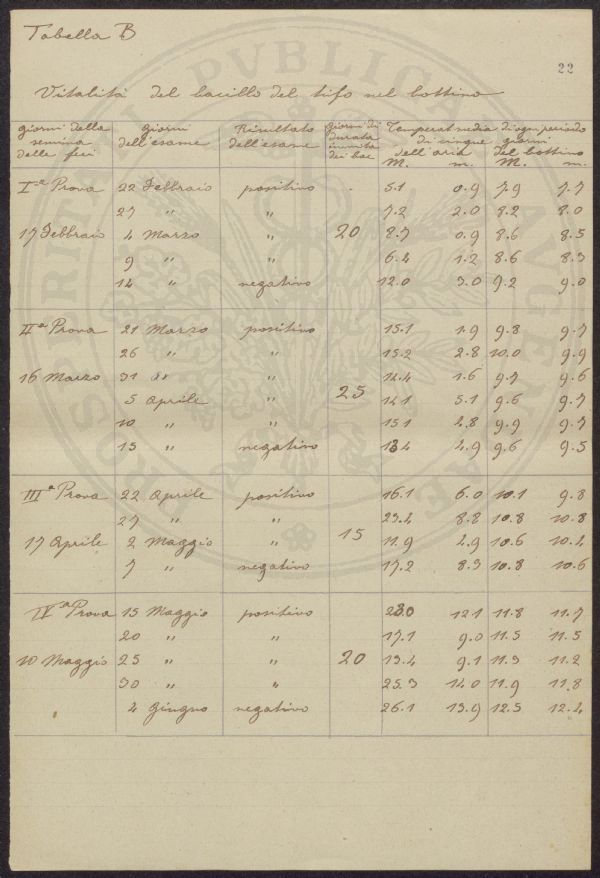 Tabella B
22
Vitalità del bacillo del tifo nel bottino
giorni della semina delle feci | giorni dell'esame | Risultato dell'esame | giorni di durata in vita dei bac | Temperat media di ogni periodo di cinque giorni
dell'aria | del bottino
M. m. M. m.
Iª Prova 22 Febbraio positivo 5.1 0.9 7.9 7.7
27 " " 7.2 2.0 8.2 8.0
17 Febbraio 4 Marzo " 20 8.7 0.9 8.6 8.5
9 " " 6.4 1.2 8.6 8.3
14 " negativo 12.0 3.0 9.2 9.0
IIª Prova 21 Marzo positivo 15.1 1.9 9.8 9.7
26 " " 15.2 2.8 10.0 9.9
16 Marzo 31 " " 12.4 1.6 9.7 9.6
5 Aprile " 25 12.1 5.1 9.6 9.7
10 " " 15.1 2.8 9.9 9.7
15 " negativo 13.4 4.9 9.6 9.5
IIIª Prova 22 Aprile positivo 16.1 6.0 10.1 9.8
27 " " 23.4 8.8 10.8 10.8
17 Aprile 2 Maggio " 15 11.9 2.9 10.6 10.4
7 " negativo 17.2 8.3 10.8 10.6
IVª Prova 15 Maggio positivo 23.0 12.1 11.8 11.7
20 " " 17.1 9.0 11.5 11.5
10 Maggio 25 " " 20 19.4 9.1 11.3 11.2
30 " " 25.3 14.0 11.9 11.8
4 Giugno negativo 26.1 13.9 12.5 12.4
PROSPERITATI PVBLICAE AVGENDAE